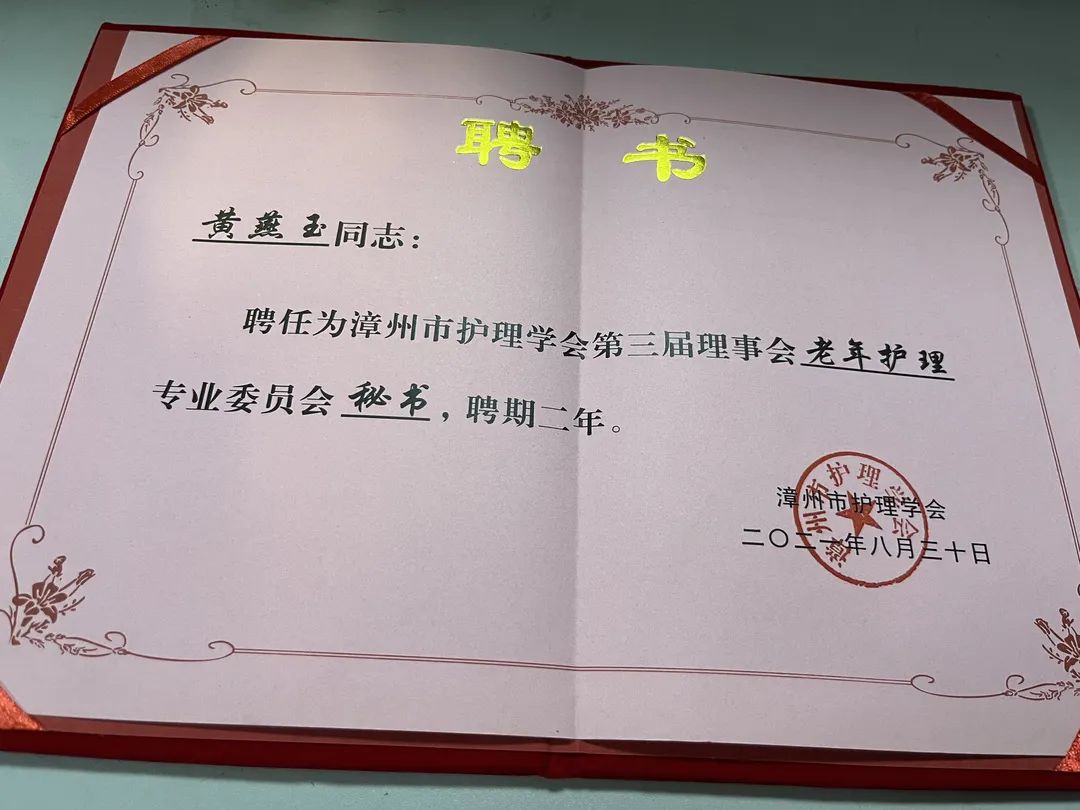 聘 书
黄燕玉同志：
聘任为漳州市护理学会第三届理事会老年护理
专业委员会秘书，聘期二年。
漳州市护理学会
漳州市护理学会
二〇二一年八月三十日